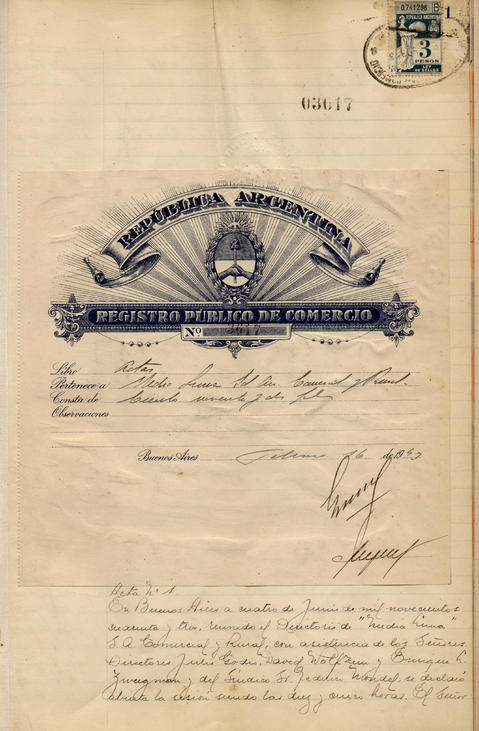 0.741296 B
1
REPUBLICA ARGENTINA
3
PESOS
LEY
DE SELLOS
03617
REPÚBLICA ARGENTINA
REGISTRO PÚBLICO DE COMERCIO
Nº 3617
Libro Actas
Pertenece a Media Luna Sd An. Comercial y Rural
Consta de Ciento noventa y dos
Observaciones
Buenos Aires Febrero 26 de 19
Acta Nº 1
En Buenos Aires a cuatro de Junio de mil novecientos
cuarenta y tres, reunido el Directorio de "Media Luna"
S.A. Comercial y Rural, con asistencia de los Señores
Directores Julio Godio, David Wolfzun y Enrique L.
Zweigman y del Síndico Sr. Federico Mondel, se declaró
abierta la sesión siendo las diez y cinco horas. El Señor